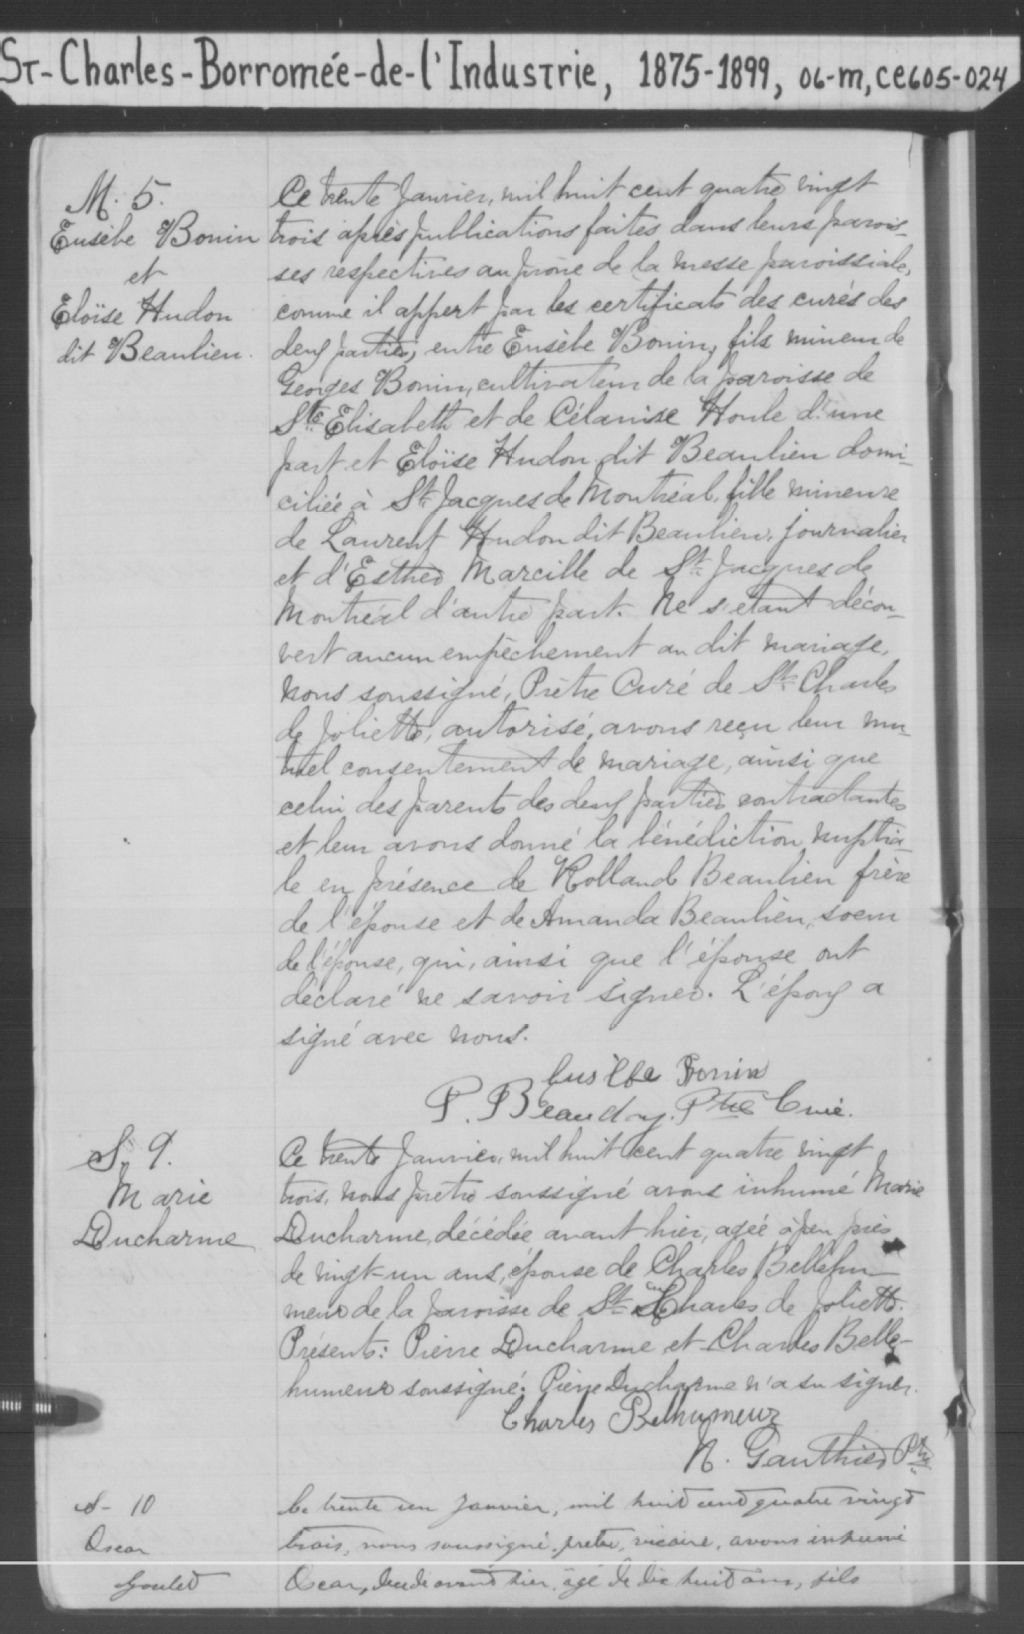 ST-Charles-Borromée-de-l'Industrie, 1875-1899, 06-m, CE605-024
M. 5.
Eusèbe Bonin
et
Eloïse Hudon
dit Beaulieu.
Ce trente Janvier, mil huit cent quatre vingt
trois après publications faites dans leurs parois-
ses respectives au prône de la messe paroissiale,
comme il appert par les certificats des curés des
deux parties, entre Eusèbe Bonin, fils mineur de
Georges Bonin, cultivateur de la paroisse de
Ste Elisabeth et de Célanise Houle d'une
part et Eloïse Hudon dit Beaulieu domi-
ciliée à St Jacques de Montréal, fille mineure
de Laurent Hudon dit Beaulieu, journalier
et d'Esther Marcille de St Jacques de
Montréal d'autre part. Ne s'étant décou-
vert aucun empêchement au dit mariage,
Nous soussigné, Prêtre Curé de St Charles
de Joliette, autorisé, avons reçu leur mu-
tuel consentement de mariage, ainsi que
celui des parents des deux parties contractantes
et leur avons donné la bénédiction nuptia-
le en présence de Rolland Beaulieu frère
de l'épouse et de Amanda Beaulieu, soeur
de l'épouse, qui, ainsi que l'épouse ont
déclaré ne savoir signer. L'époux a
signé avec nous.
Eusèbe Bonin
P. Beaudry. Ptre Curé.
S. 9.
Marie
Ducharme
Ce trente Janvier, mil huit cent quatre vingt
trois, nous prêtre soussigné avons inhumé Marie
Ducharme, décédée avant hier, agée à peu près
de vingt-un ans, épouse de Charles Bellehu-
meur de la paroisse de St Charles de Joliette.
Présents: Pierre Ducharme et Charles Belle-
humeur soussigné. Pierre Ducharme n'a su signer.
Charles Belhumeur
N. Gauthier Ptre
S- 10
Oscar
Goulet
Ce trente un Janvier, mil huit cent quatre vingt
trois, nous soussigné, prêtre, vicaire, avons inhumé
Oscar, décédé avant hier, âgé de dix huit ans, fils